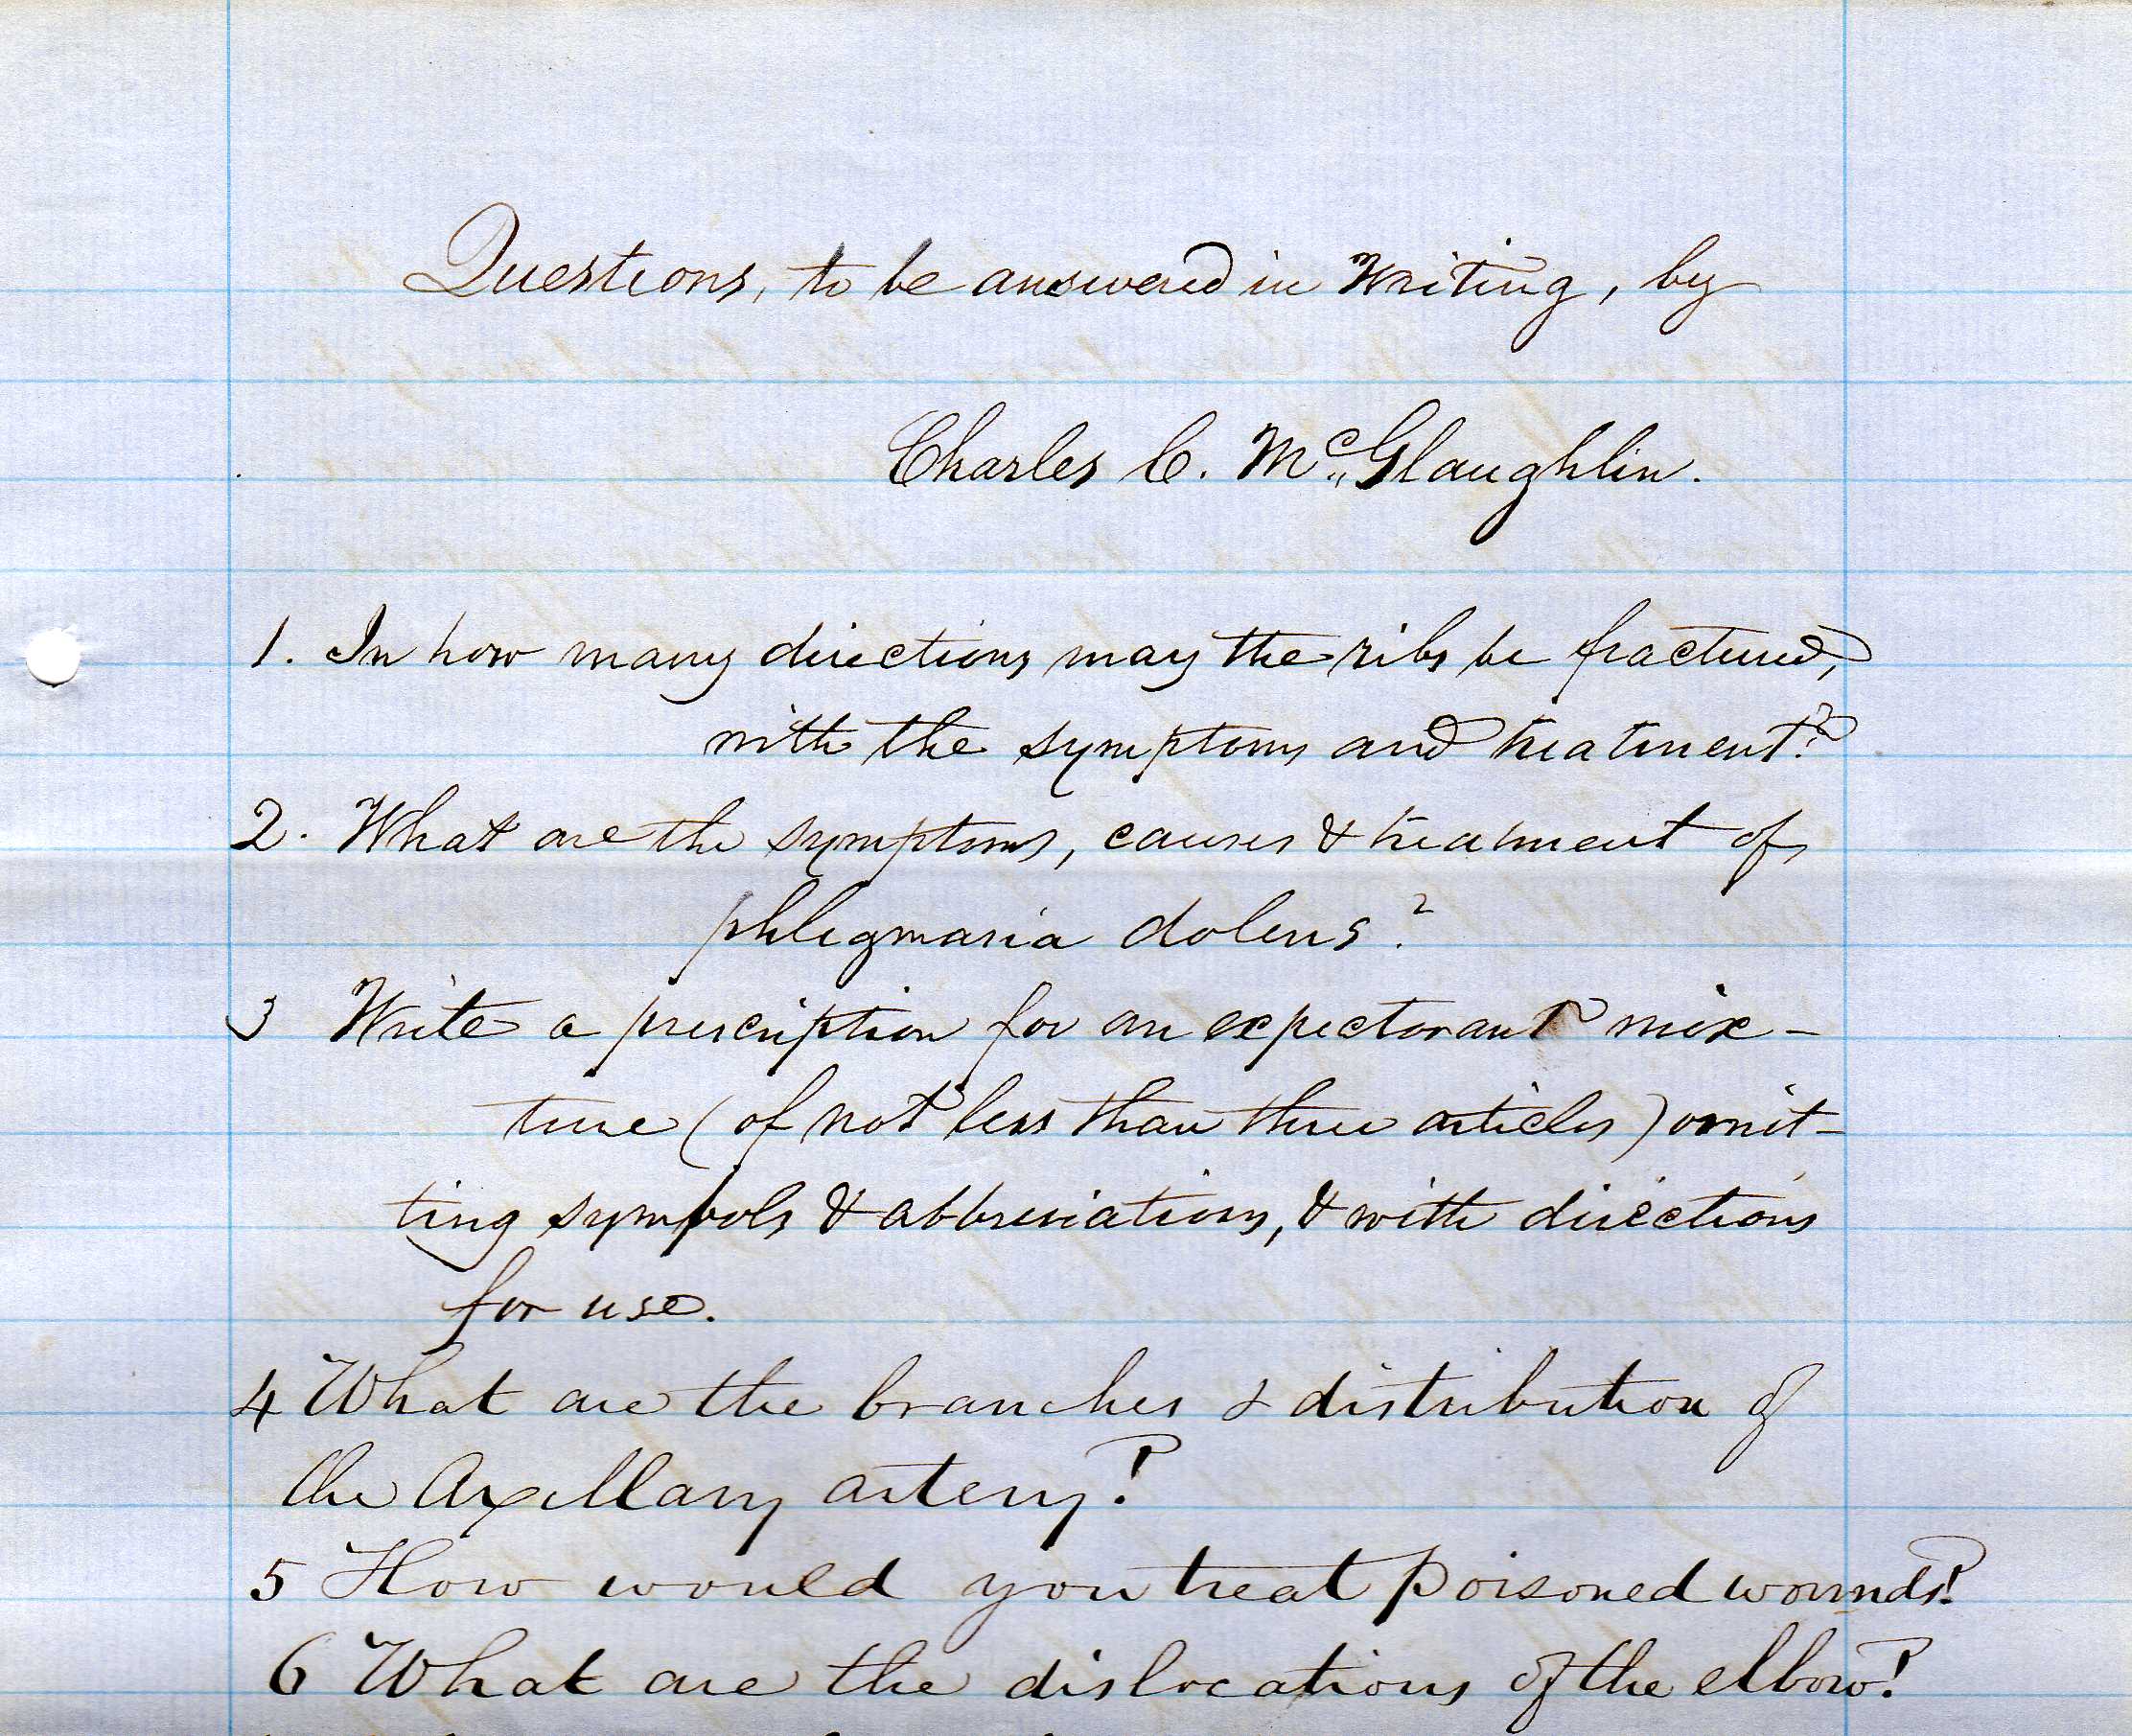 Questions, to be answered in Writing, by
Charles C. McGlaughlin.
1. In how many directions may the ribs be fractured,
with the symptoms and treatment?
2. What are the symptoms, causes & treatment of
phlegmasia dolens?
3 Write a prescription for an expectorant mix-
ture (of not less than three articles) omit-
ting symbols & abbreviations, & with directions
for use.
4 What are the branches & distribution of
the Axillary artery?
5 How would you treat poisoned wounds?
6 What are the dislocations of the elbow?